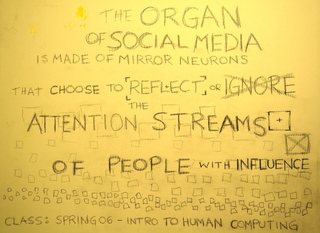 THE ORGAN
OF SOCIAL MEDIA
IS MADE OF MIRROR NEURONS
THAT CHOOSE TO [REFLECT] OR IGNORE
THE
ATTENTION STREAMS
OF PEOPLE WITH INFLUENCE
CLASS: SPRING 06 - INTRO TO HUMAN COMPUTING